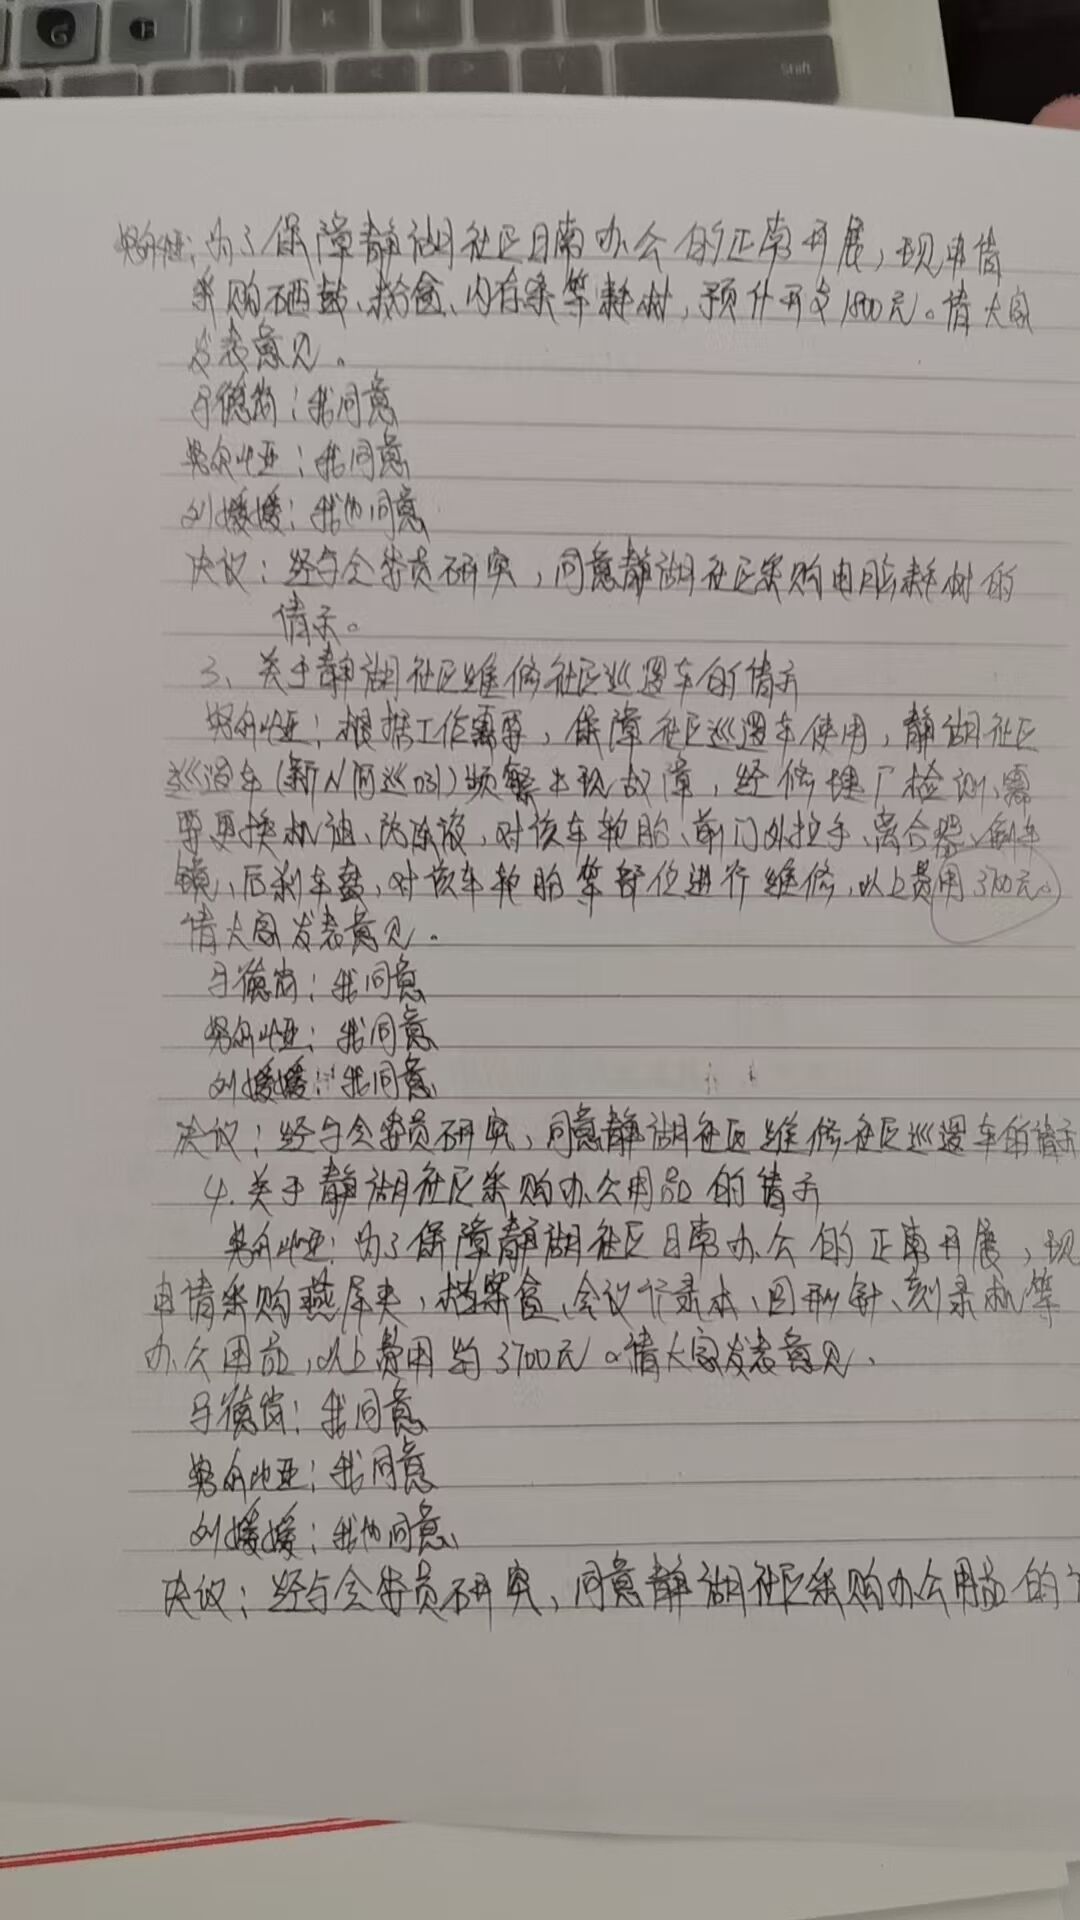 G
Shift
努尔比亚：为了保障静湖社区日常办公的正常开展，现申请
采购硒鼓、粉盒、内存条等耗材，预计开支1800元。请大家
发表意见。
马德岗：我同意
努尔比亚：我同意
刘媛媛：我也同意
决议：经与会委员研究，同意静湖社区采购电脑耗材的
请示。
3、关于静湖社区维修社区巡逻车的请示
努尔比亚：根据工作需要，保障社区巡逻车使用，静湖社区
巡逻车（新N阿巡）频繁出现故障，经修理厂检测，需
要更换机油、防冻液，对该车轮胎、前门外拉手、离合器、倒车
镜、后刹车盘，对该车轮胎等部位进行维修，以上费用3700元。
请大家发表意见。
马德岗：我同意
努尔比亚：我同意
刘媛媛：我同意
决议：经与会委员研究，同意静湖社区维修社区巡逻车的请示
4.关于静湖社区采购办公用品的请示
努尔比亚：为了保障静湖社区日常办公的正常开展，现
申请采购燕尾夹，档案盒、会议记录本、回形针、刻录机等
办公用品，以上费用约3700元。请大家发表意见。
马德岗：我同意
努尔比亚：我同意
刘媛媛：我也同意
决议：经与会委员研究，同意静湖社区采购办公用品的